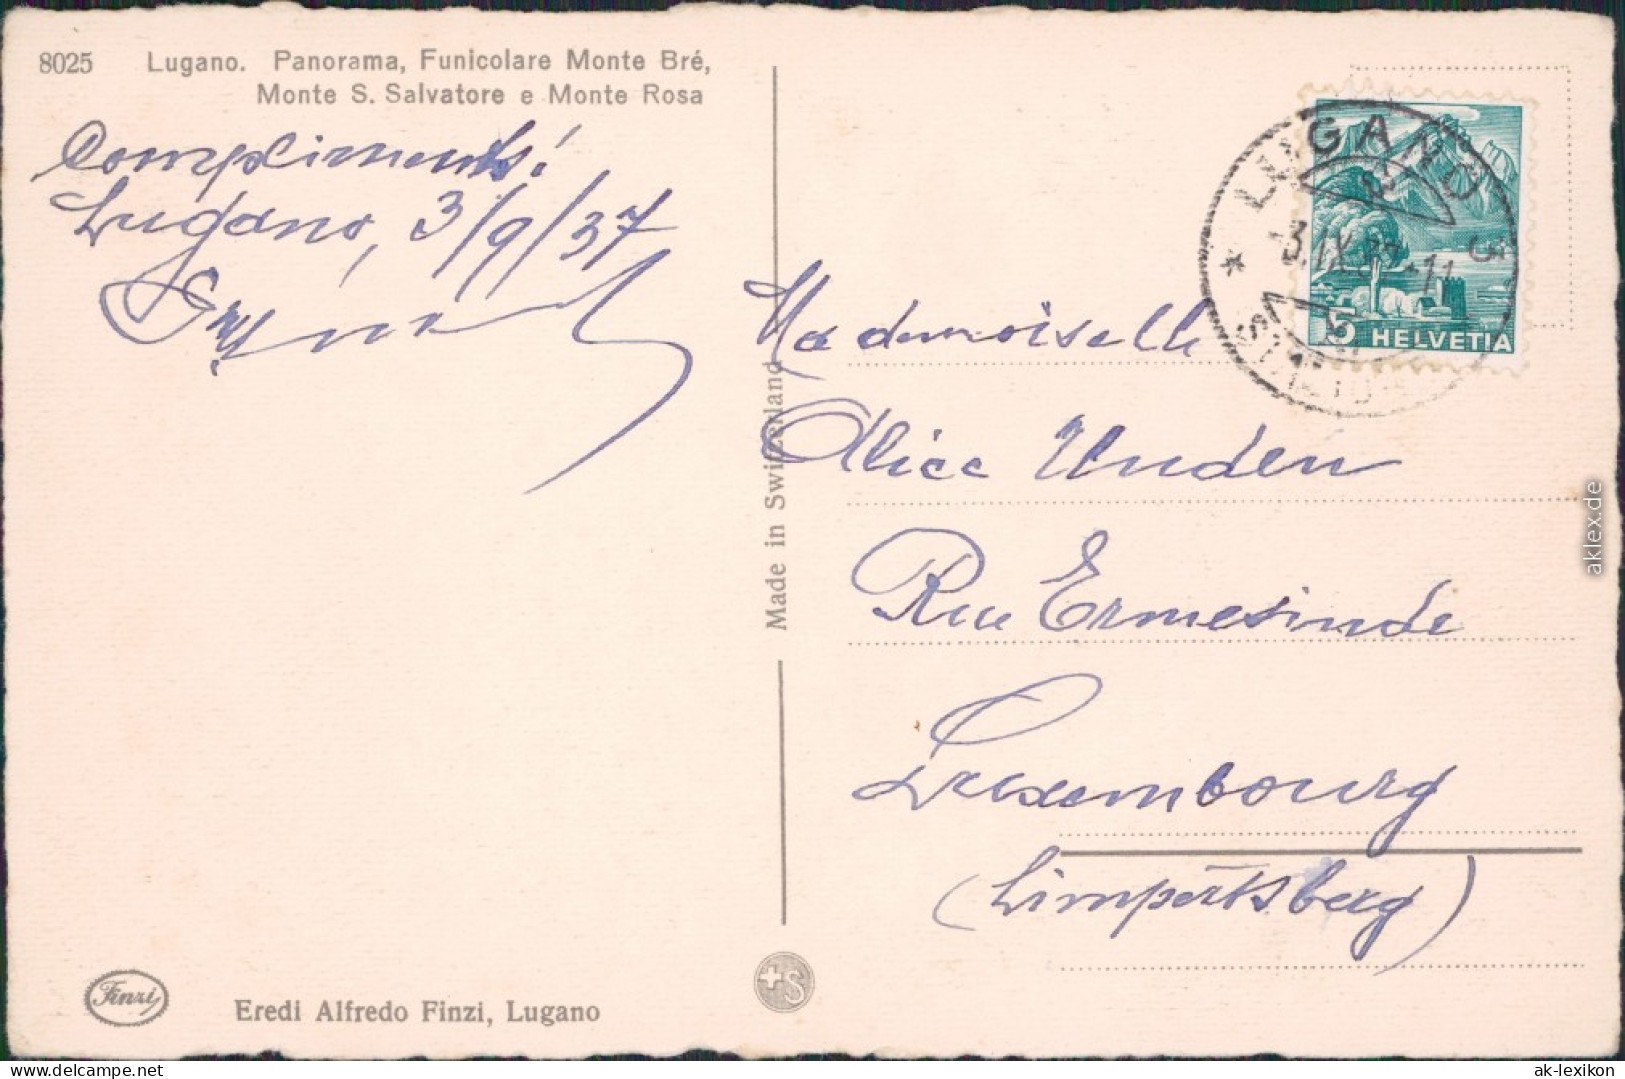 8025 Lugano. Panorama, Funicolare Monte Bré,
Monte S. Salvatore e Monte Rosa
Compliments!
Lugano, 3/9/37
Made in Switzerland
LUGANO 3
3.IX.37-11
5 HELVETIA
Mademoiselle
Alice Unden
Rue Ermesinde
Luxembourg
(Limpertsberg)
Finzi
Eredi Alfredo Finzi, Lugano
+S
aklex.de
© ak-lexikon